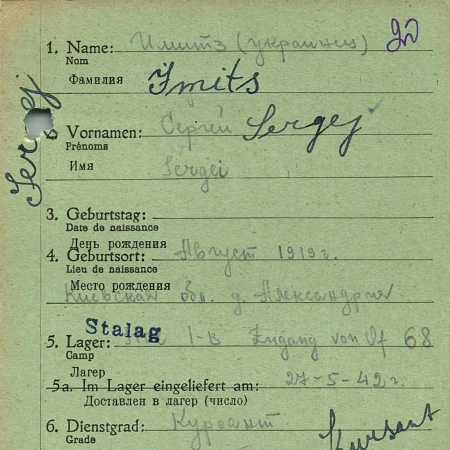 20
1. Name: Имитз (украинец)
Nom
Фамилия
Imits
Sergej
Vornamen: Сергей Sergej
Prénoms
Имя Sergei
3. Geburtstag:
Date de naissance
День рождения
4. Geburtsort: Август 1919 г.
Lieu de naissance
Место рождения
Киевская обл. д. Александрия
5. Lager: Stalag I-B Zugang von Of 68
Camp
Лагер
5a. Im Lager eingeliefert am: 27-5-42 г.
Доставлен в лагер (число)
6. Dienstgrad: Курсант
Grade
Kursant